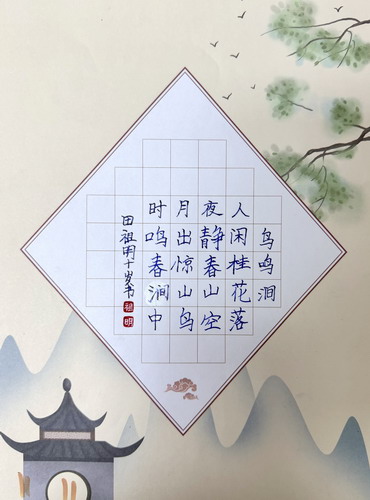 鸟鸣涧
人闲桂花落
夜静春山空
月出惊山鸟
时鸣春涧中
田祖明十岁书
祖
明